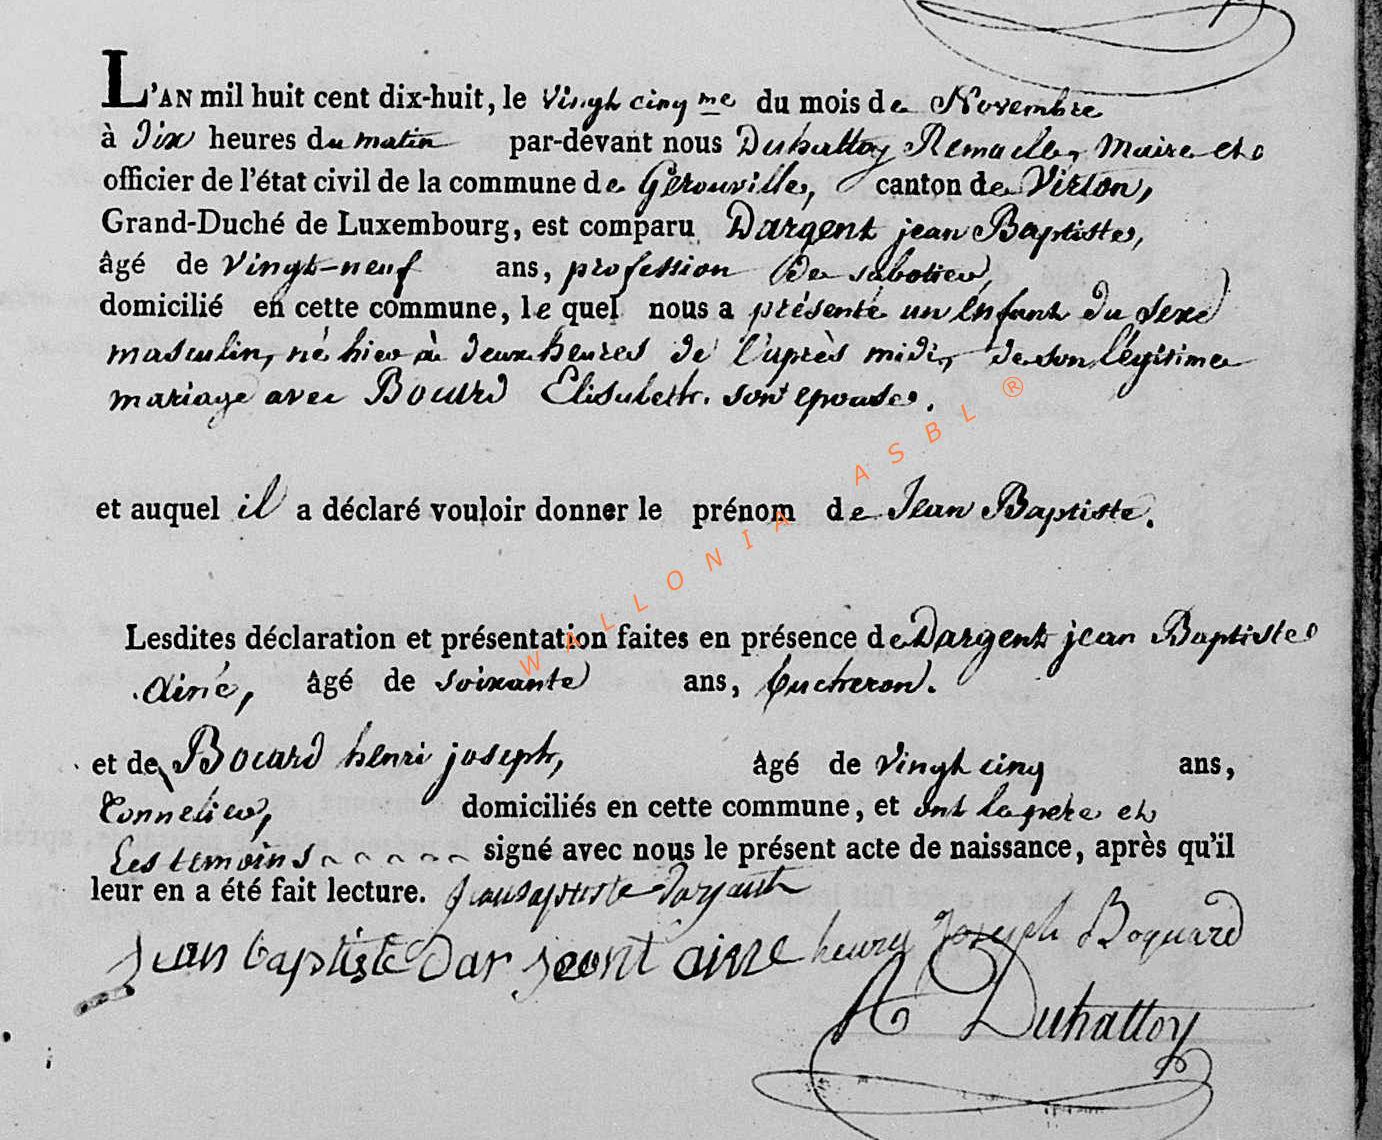 L'AN mil huit cent dix-huit, le vingt cinq me du mois de Novembre
à dix heures du matin par-devant nous Duhattoy Remacle, Maire et
officier de l'état civil de la commune de Gérouville, canton de Virton,
Grand-Duché de Luxembourg, est comparu Dargent jean Baptiste,
âgé de vingt-neuf ans, profession de sabotier,
domicilié en cette commune, le quel nous a présenté un Enfant du sexe
masculin, né hier à deux heures de l'après midi, de son légitime
mariage avec Bocard Elisabeth. son epouse.
et auquel il a déclaré vouloir donner le prénom de Jean Baptiste.
Lesdites déclaration et présentation faites en présence de Dargent jean Baptiste
ainé, âgé de soixante ans, bucheron.
et de Bocard henri joseph, âgé de vingt cinq ans,
Tonnelier, domiciliés en cette commune, et ont le pere et
Les temoins signé avec nous le présent acte de naissance, après qu'il
leur en a été fait lecture. Jean baptiste dargent
Jean baptiste Dar jeant aine henry Joseph Boquard
R Duhattoy
WALLONIA ASBL ®